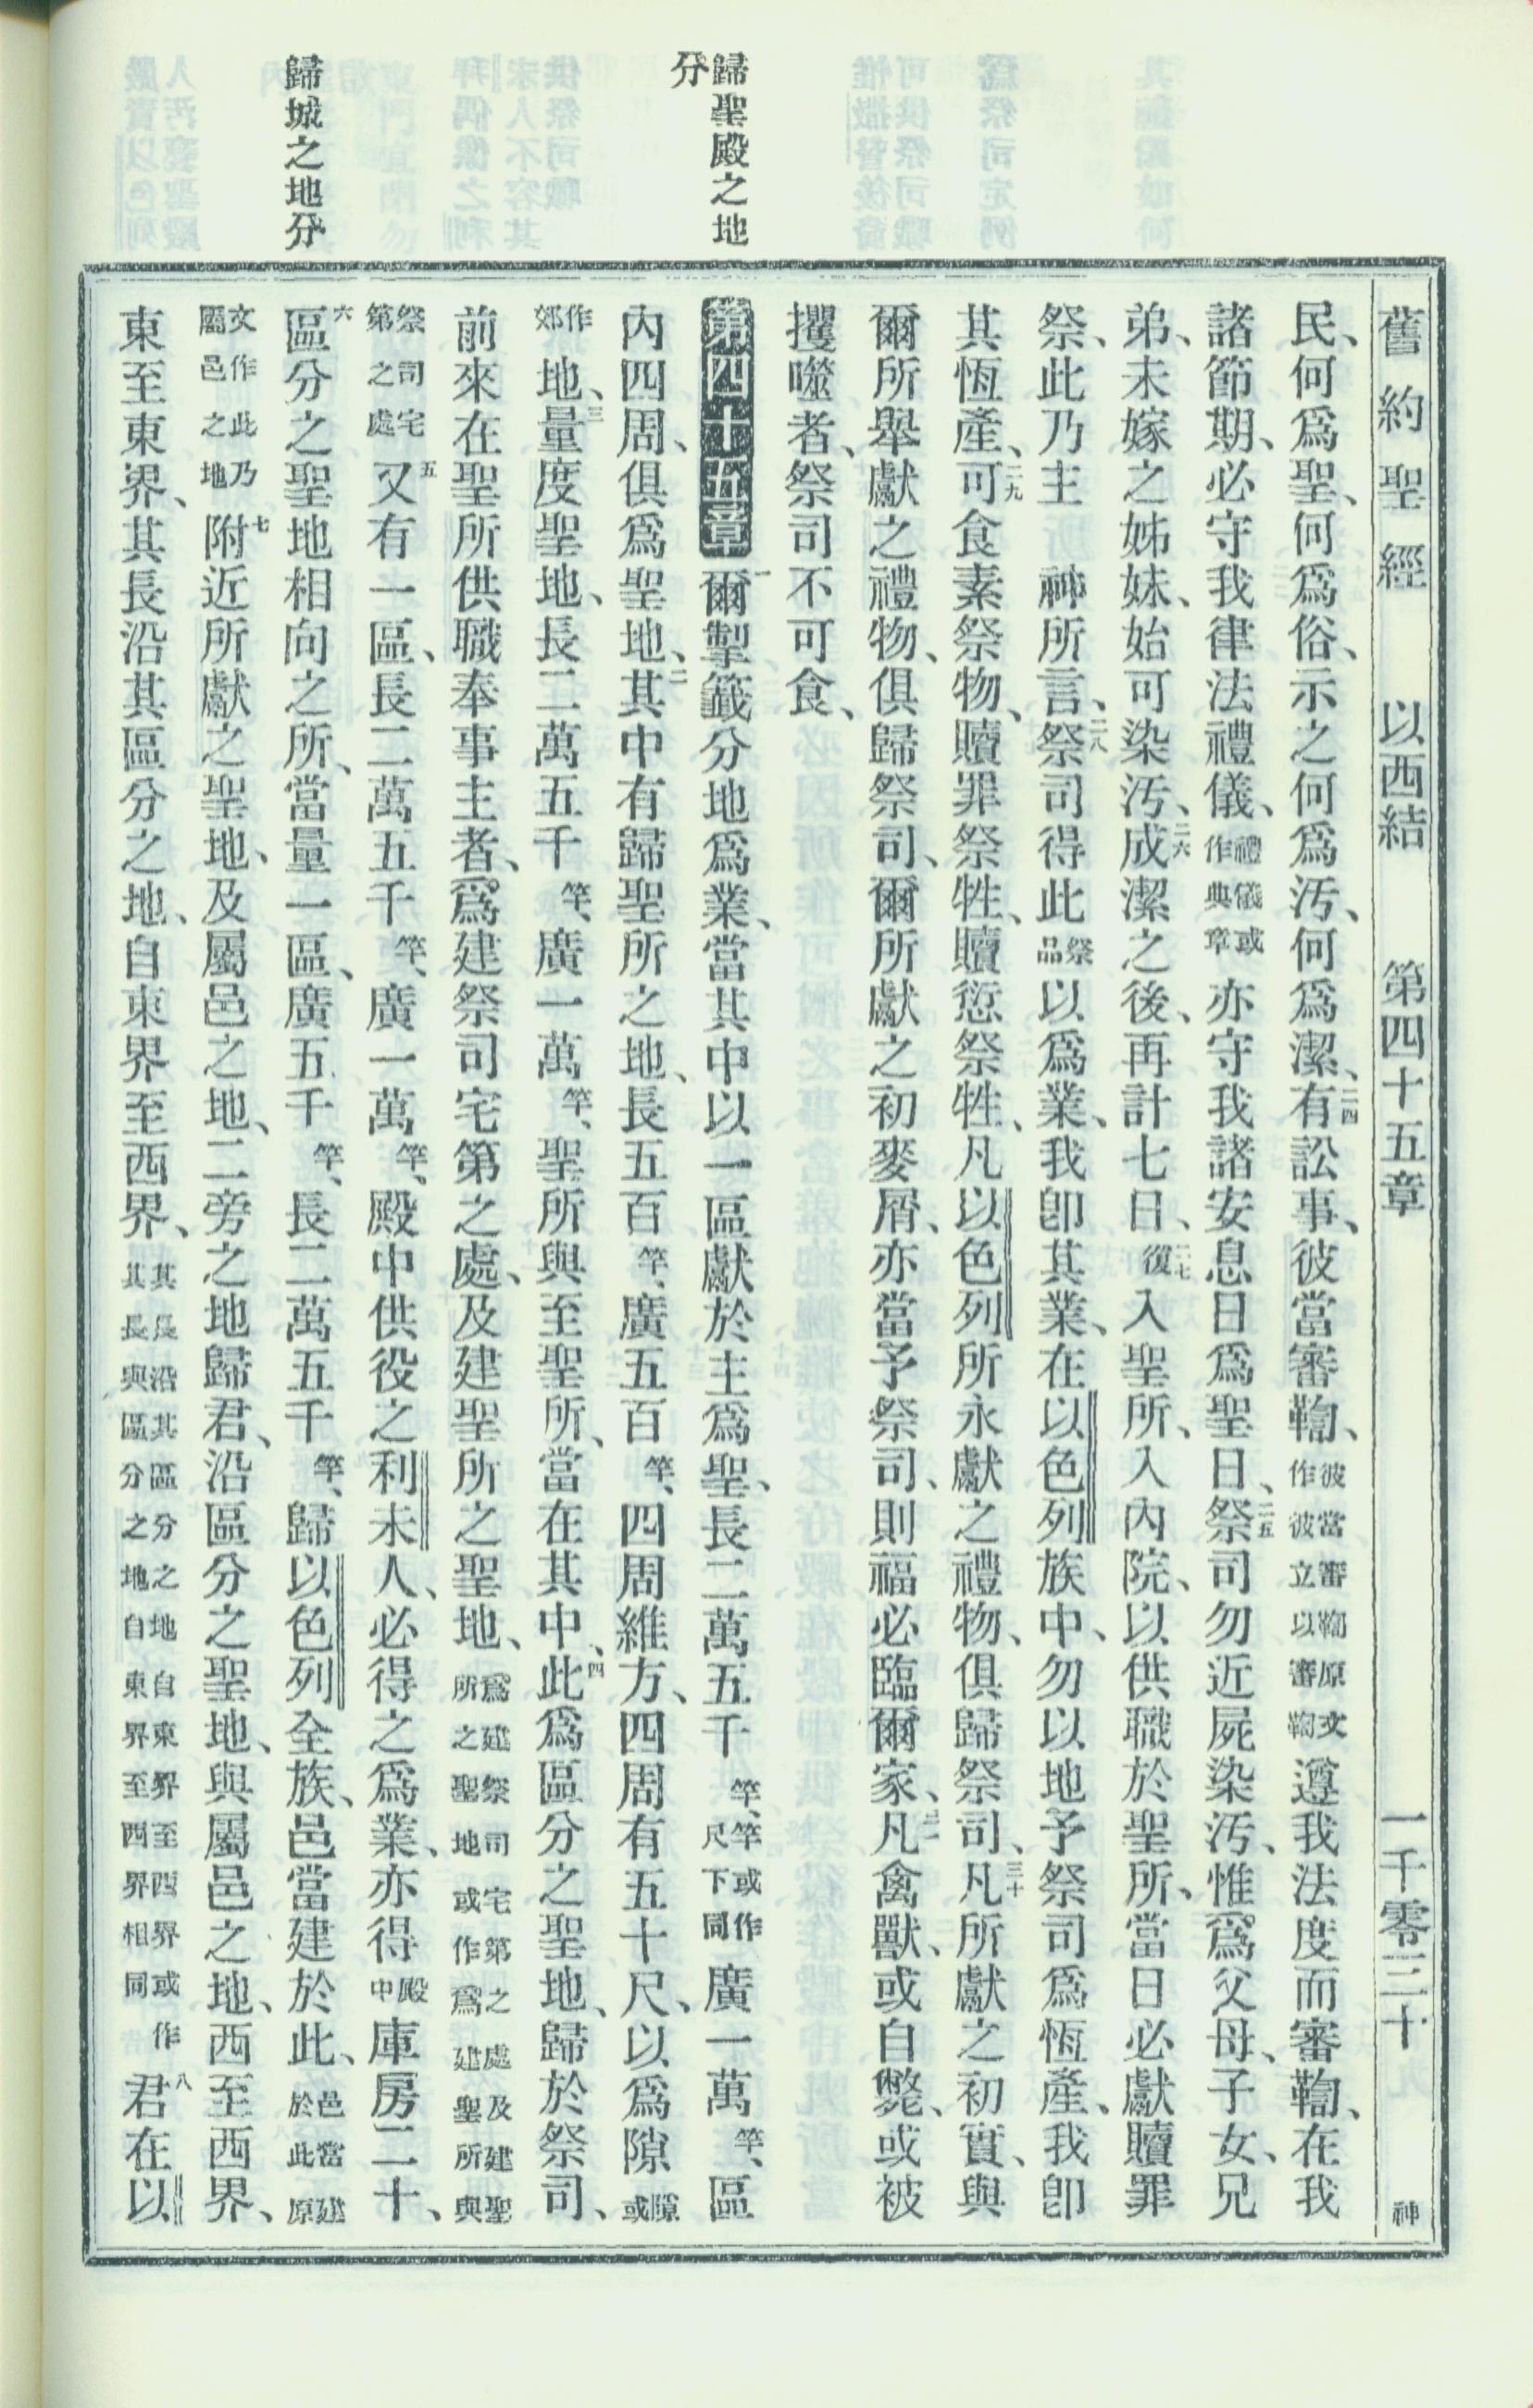 舊約聖經　以西結　第四十五章　一千零三十　神
民、何爲聖、何爲俗、示之何爲汚、何爲潔、二四有訟事、彼當審鞫、彼當審鞫原文作彼立以審鞫遵我法度而審鞫、在我
諸節期、必守我律法禮儀、禮儀或作典章亦守我諸安息日爲聖日、二五祭司勿近屍染汚、惟爲父母、子女、兄
弟、未嫁之姊妹、始可染汚、二六成潔之後、再計七日、二七復入聖所、入內院、以供職於聖所、當日必獻贖罪
祭、此乃主神所言、二八祭司得此祭品以爲業、我卽其業、在以色列族中、勿以地予祭司爲恆產、我卽
其恆產、二九可食素祭物、贖罪祭牲、贖愆祭牲、凡以色列所永獻之禮物、俱歸祭司、三十凡所獻之初實、與
爾所舉獻之禮物、俱歸祭司、爾所獻之初麥屑、亦當予祭司、則福必臨爾家、三一凡禽獸、或自斃、或被
攫噬者、祭司不可食、
歸聖殿之地分
第四十五章　一爾掣籤分地爲業、當其中以一區獻於主爲聖、長二萬五千竿、竿或作尺下同廣一萬竿、區
內四周、俱爲聖地、二其中有歸聖所之地、長五百竿、廣五百竿、四周維方、四周有五十尺、以爲隙隙或
作郊地、三量度聖地、長二萬五千竿、廣一萬竿、聖所與至聖所、當在其中、四此爲區分之聖地、歸於祭司、
前來在聖所供職奉事主者、爲建祭司宅第之處、及建聖所之聖地、爲建祭司宅第之處及建聖所之聖地或作爲建聖所與
祭司宅第之處五又有一區、長二萬五千竿、廣一萬竿、殿中供役之利未人、必得之爲業、亦得殿中庫房二十、
歸城之地分
六區分之聖地相向之所、當量一區、廣五千竿、長二萬五千竿、歸以色列全族、邑當建於此、邑當建於此原
文作此乃屬邑之地七附近所獻之聖地、及屬邑之地、二旁之地歸君、沿區分之聖地、與屬邑之地、西至西界、
東至東界、其長沿其區分之地、自東界至西界、其長沿其區分之地自東界至西界或作其長與區分之地自東界至西界相同八君在以